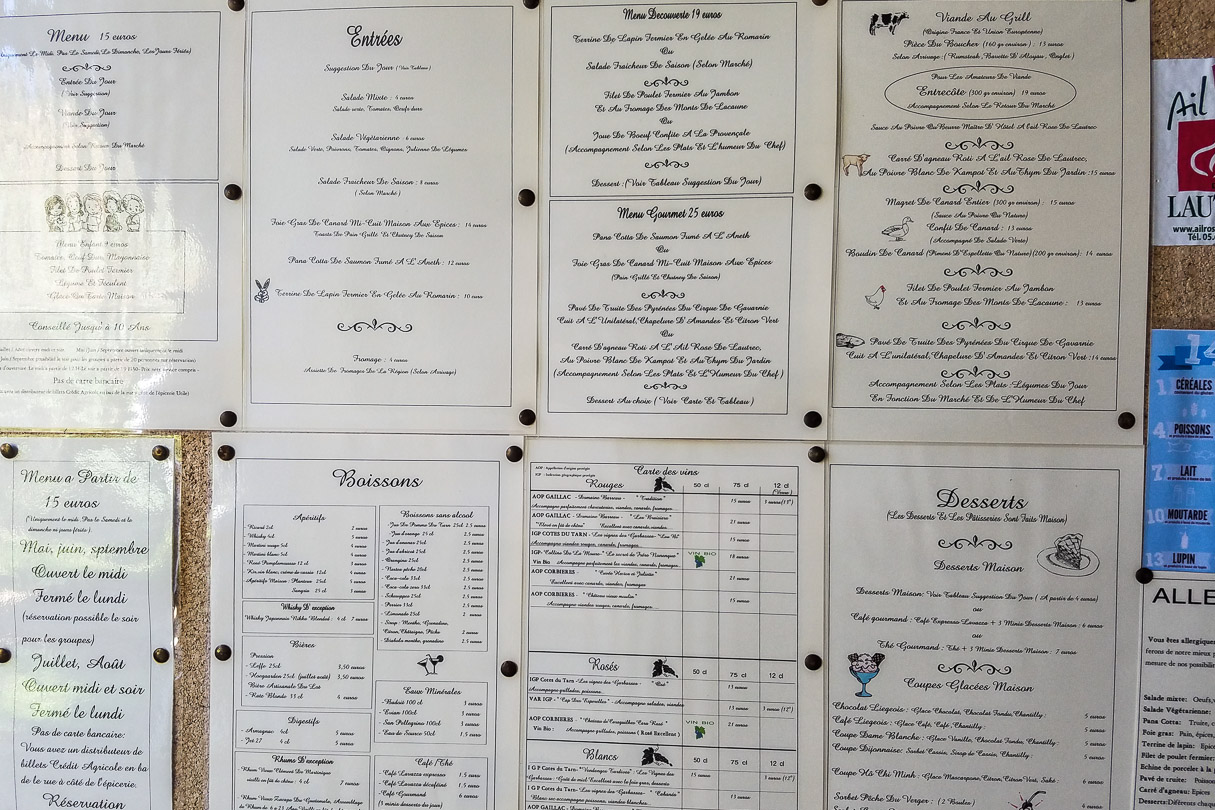 Menu 15 euros
Entrée Du Jour
( Voir Suggestion)
Viande Du Jour
(Voir Suggestion)
Accompagnement Selon Retour Du Marché
Dessert Du Jour
Menu Enfant 9 euros
Tomates, Oeuf Dur Mayonnaise
Filet De Poulet Fermier
Légume Et Féculent
Glace Ou Tarte Maison
Conseillé Jusqu'à 10 Ans
Pas de carte bancaire
Entrées
Suggestion Du Jour (Voir Tableau)
Salade Mixte : 4 euros
Salade verte, Tomates, Oeufs durs
Salade Végétarienne : 6 euros
Salade Verte, Poivrons, Tomates, Oignons, Julienne De Légumes
Salade Fraicheur De Saison : 8 euros
( Selon Marché)
Foie Gras De Canard Mi-Cuit Maison Aux Epices : 14 euros
Toasts De Pain Grillé Et Chutney De Saison
Pana Cotta De Saumon Fumé A L'Aneth : 12 euros
Terrine De Lapin Fermier En Gelée Au Romarin : 10 euros
Fromage : 4 euros
Assiette De Fromages De La Région (Selon Arrivage)
Menu Decouverte 19 euros
Terrine De Lapin Fermier En Gelée Au Romarin
Ou
Salade Fraicheur De Saison (Selon Marché)
Filet De Poulet Fermier Au Jambon
Et Au Fromage Des Monts De Lacaune
Ou
Joue De Boeuf Confite A La Provençale
(Accompagnement Selon Les Plats Et L'humeur Du Chef)
Dessert :(Voir Tableau Suggestion Du Jour)
Menu Gourmet 25 euros
Pana Cotta De Saumon Fumé A L'Aneth
Ou
Foie Gras De Canard Mi-Cuit Maison Aux Epices
(Pain Grillé Et Chutney De Saison)
Pavé De Truite Des Pyrénées Du Cirque De Gavarnie
Cuit A L'Unilatéral,Chapelure D'Amandes Et Citron Vert
Ou
Carré D'agneau Roti A L'Ail Rose De Lautrec,
Au Poivre Blanc De Kampot Et AuThym Du Jardin
(Accompagnement Selon Les Plats Et L'Humeur Du Chef )
Dessert Au choix ( Voir Carte Et Tableau )
Viande Au Grill
(Origine France Et Union Européenne)
Pièce Du Boucher (160 gr environ) : 15 euros
Selon Arrivage :( Rumsteak, Bavette D'Aloyau , Onglet)
Pour Les Amateurs De Viande
Entrecôte (300 gr environ) 19 euros
Accompagnement Selon Le Retour Du Marché
Sauce Au Poivre Ou Beurre Maître D'Hôtel A L'ail Rose De Lautrec
Carré D'agneau Roti A L'ail Rose De Lautrec,
Au Poivre Blanc De Kampot Et AuThym Du Jardin :15 euros
Magret De Canard Entier (300 gr environ) : 15 euros
(Sauce Au Poivre Ou Nature)
Confit De Canard : 13 euros
(Accompagné De Salade Verte)
Boudin De Canard (Piment D'Espellette Ou Nature)(200 gr environ): 14 euros
Filet De Poulet Fermier Au Jambon
Et Au Fromage Des Monts De Lacaune : 13 euros
Pavé De Truite Des Pyrénées Du Cirque De Gavarnie
Cuit A L'unilatéral,Chapelure D'Amandes Et Citron Vert :14 euros
Accompagnement Selon Les Plats :Légumes Du Jour
En Fonction Du Marché Et De L'Humeur Du Chef
Ail
LAU
CÉRÉALES
4 POISSONS
7 LAIT
10 MOUTARDE
13 LUPIN
Menu a Partir de
15 euros
(Uniquement le midi. Pas le Samedi et le
dimanche ou jours fériés ).
Mai, juin, sptembre
Ouvert le midi
Fermé le lundi
(réservation possible le soir
pour les groupes)
Juillet, Août
Ouvert midi et soir
Fermé le lundi
Pas de carte bancaire:
Vous avez un distributeur de
billets Crédit Agricole en ba
de le rue à côté de l'épicerie.
Réservation
Boissons
Apéritifs
Ricard 2cl 2 euros
Whisky 4cl 5 euros
Martini rouge 5cl 4 euros
Martini blanc 5cl 4 euros
Rosé Pamplemousse 12 cl 3 euros
Kir,vin blanc, crème de cassis 12cl 4 euros
Apéritifs Maison : Planteur 25cl 5 euros
Sangria 25 cl 5 euros
Whisky D'exception
Whisky Japonnais Nikka Blended : 4 cl 7 euros
Bières
Pression
- Leffe 25cl 3,50 euros
- Hoegaarden 25cl (juillet août) 3,50 euros
Bière Artisanale Du Lot
- Ratz Blonde 33 cl 4 euros
Digestifs
- Armagnac 4cl 5 euros
- Jet 27 4cl 5 euros
Rhums D'exception
Rhum Vieux Clément De Martinique
vieilli en fût de chêne : 4 cl 7 euros
Boissons sans alcool
- Jus De Pomme Du Tarn 25cl 2.5 euros
- Jus d'orange 25 cl 2.5 euros
- Jus d'ananas 25cl 2.5 euros
- Jus d'abricot 25cl 2.5 euros
- Orangina 25cl 2.5 euros
- Nestea pêche 20cl 2.5 euros
- Coca-cola 33cl 2.5 euros
- Coca-cola zero 33cl 2.5 euros
- Schweppes 25cl 2.5 euros
- Perrier 33cl 2.5 euros
- Limonade 25cl 2 euros
- Sirop : Menthe, Grenadine,
Citron, Châtaigne, Pêche 2 euros
- Diabolo menthe, grenadine 2.5 euros
Eaux Minérales
- Badoit 100 cl 3 euros
- Evian 100cl 3 euros
- San Pellegrino 100cl 3 euros
- Eau de Source 50cl 1.5 euros
Café /Thé
- Café Lavazza expresso 1.5 euros
- Café Lavazza décaféiné 1.5 euros
- Café Gourmand 6 euros
(3 minis desserts du jour)
Carte des vins
Rouges 50 cl 75 cl 12 cl
(Verre )
AOP GAILLAC - Domaine Barreau - " Tradition" 15 euros 3 euros (12°)
Accompagne parfaitement charcuteries, viandes, canards, fromages.
AOP GAILLAC - Domaine Barreau
21 euros
IGP COTES DU TARN - Les vignes des Garbasses-
15 euros
18 euros
VIN BIO
Vin Bio
AOP CORBIERES - "Cuvée Roméo et Juliette" 21 euros
Excellent avec canards, viandes, fromages
AOP CORBIERES - " Château vieux moulin" 15 euros
Accompagne viandes rouges, canards, fromages.
Rosés 50 cl 75 cl 12 cl
IGP Cotes du Tarn -Les vignes des Garbasses-
Accompagne grillades, poissons. 13 euros
13 euros 3 euros (12°)
AOP CORBIERES
Vin Bio : Accompagne grillades, poissons ( Rosé Excellent ) VIN BIO 21 euros
Blancs 50 cl 75 cl 12 cl
15 euros 3 euros (12°)
Desserts
(Les Desserts Et Les Pâtisseries Sont Faits Maison)
Desserts Maison
Desserts Maison: Voir Tableau Suggestion Du Jour ( A partir de 4 euros)
ou
Café gourmand : Café Expresso Lavazza + 3 Minis Desserts Maison : 6 euros
ou
Thé Gourmand : Thé + 3 Minis Desserts Maison : 7 euros
Coupes Glacées Maison
Chocolat Liegeois : Glace Chocolat, Chocolat Fondu,Chantilly : 5 euros
Café Liegeois : Glace Café, Café ,Chantilly : 5 euros
Coupe Dame Blanche : Glace Vanille, Chocolat Fondu, Chantilly : 5 euros
Coupe Dijonnaise: Sorbet Cassis, Sirop de Cassis, Chantilly : 5 euros
Coupe Hô Chi Minh : Glace Mascarpone,Citron,Citron Vert, Saké : 6 euros
Sorbet Pêche Du Verger : (2 Boules) 4 euros
ALLE
Vous êtes allergique
ferons de notre mieux
mesure de nos possibili
Salade mixte: Oeufs,
Salade Végétarienne:
Pana Cotta: Truite,
Foie gras: Pain, épices,
Terrine de lapin:
Filet de poulet fermier:
Echine de porcelet à la
Pavé de truite: Poisson
Carré d'agneau:
Dessert: